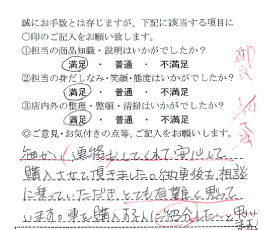 誠にお手数とは存じますが、下記に該当する項目に
○印のご記入をお願い致します。
①担当の商品知識・説明はいかがでしたか？
満足・普通・不満足
②担当の身だしなみ・笑顔・態度はいかがでしたか？
満足・普通・不満足
③店内外の整理・整頓・清掃はいかがでしたか？
満足・普通・不満足
◎ご意見・お気付きの点等、ご記入をお願いします。
細かい連絡もしてくれて安心して
購入させて頂きました。納車後も相談
に乗っていただき、とても有難く思って
います。車を購入する人に紹介したいと思い
ます